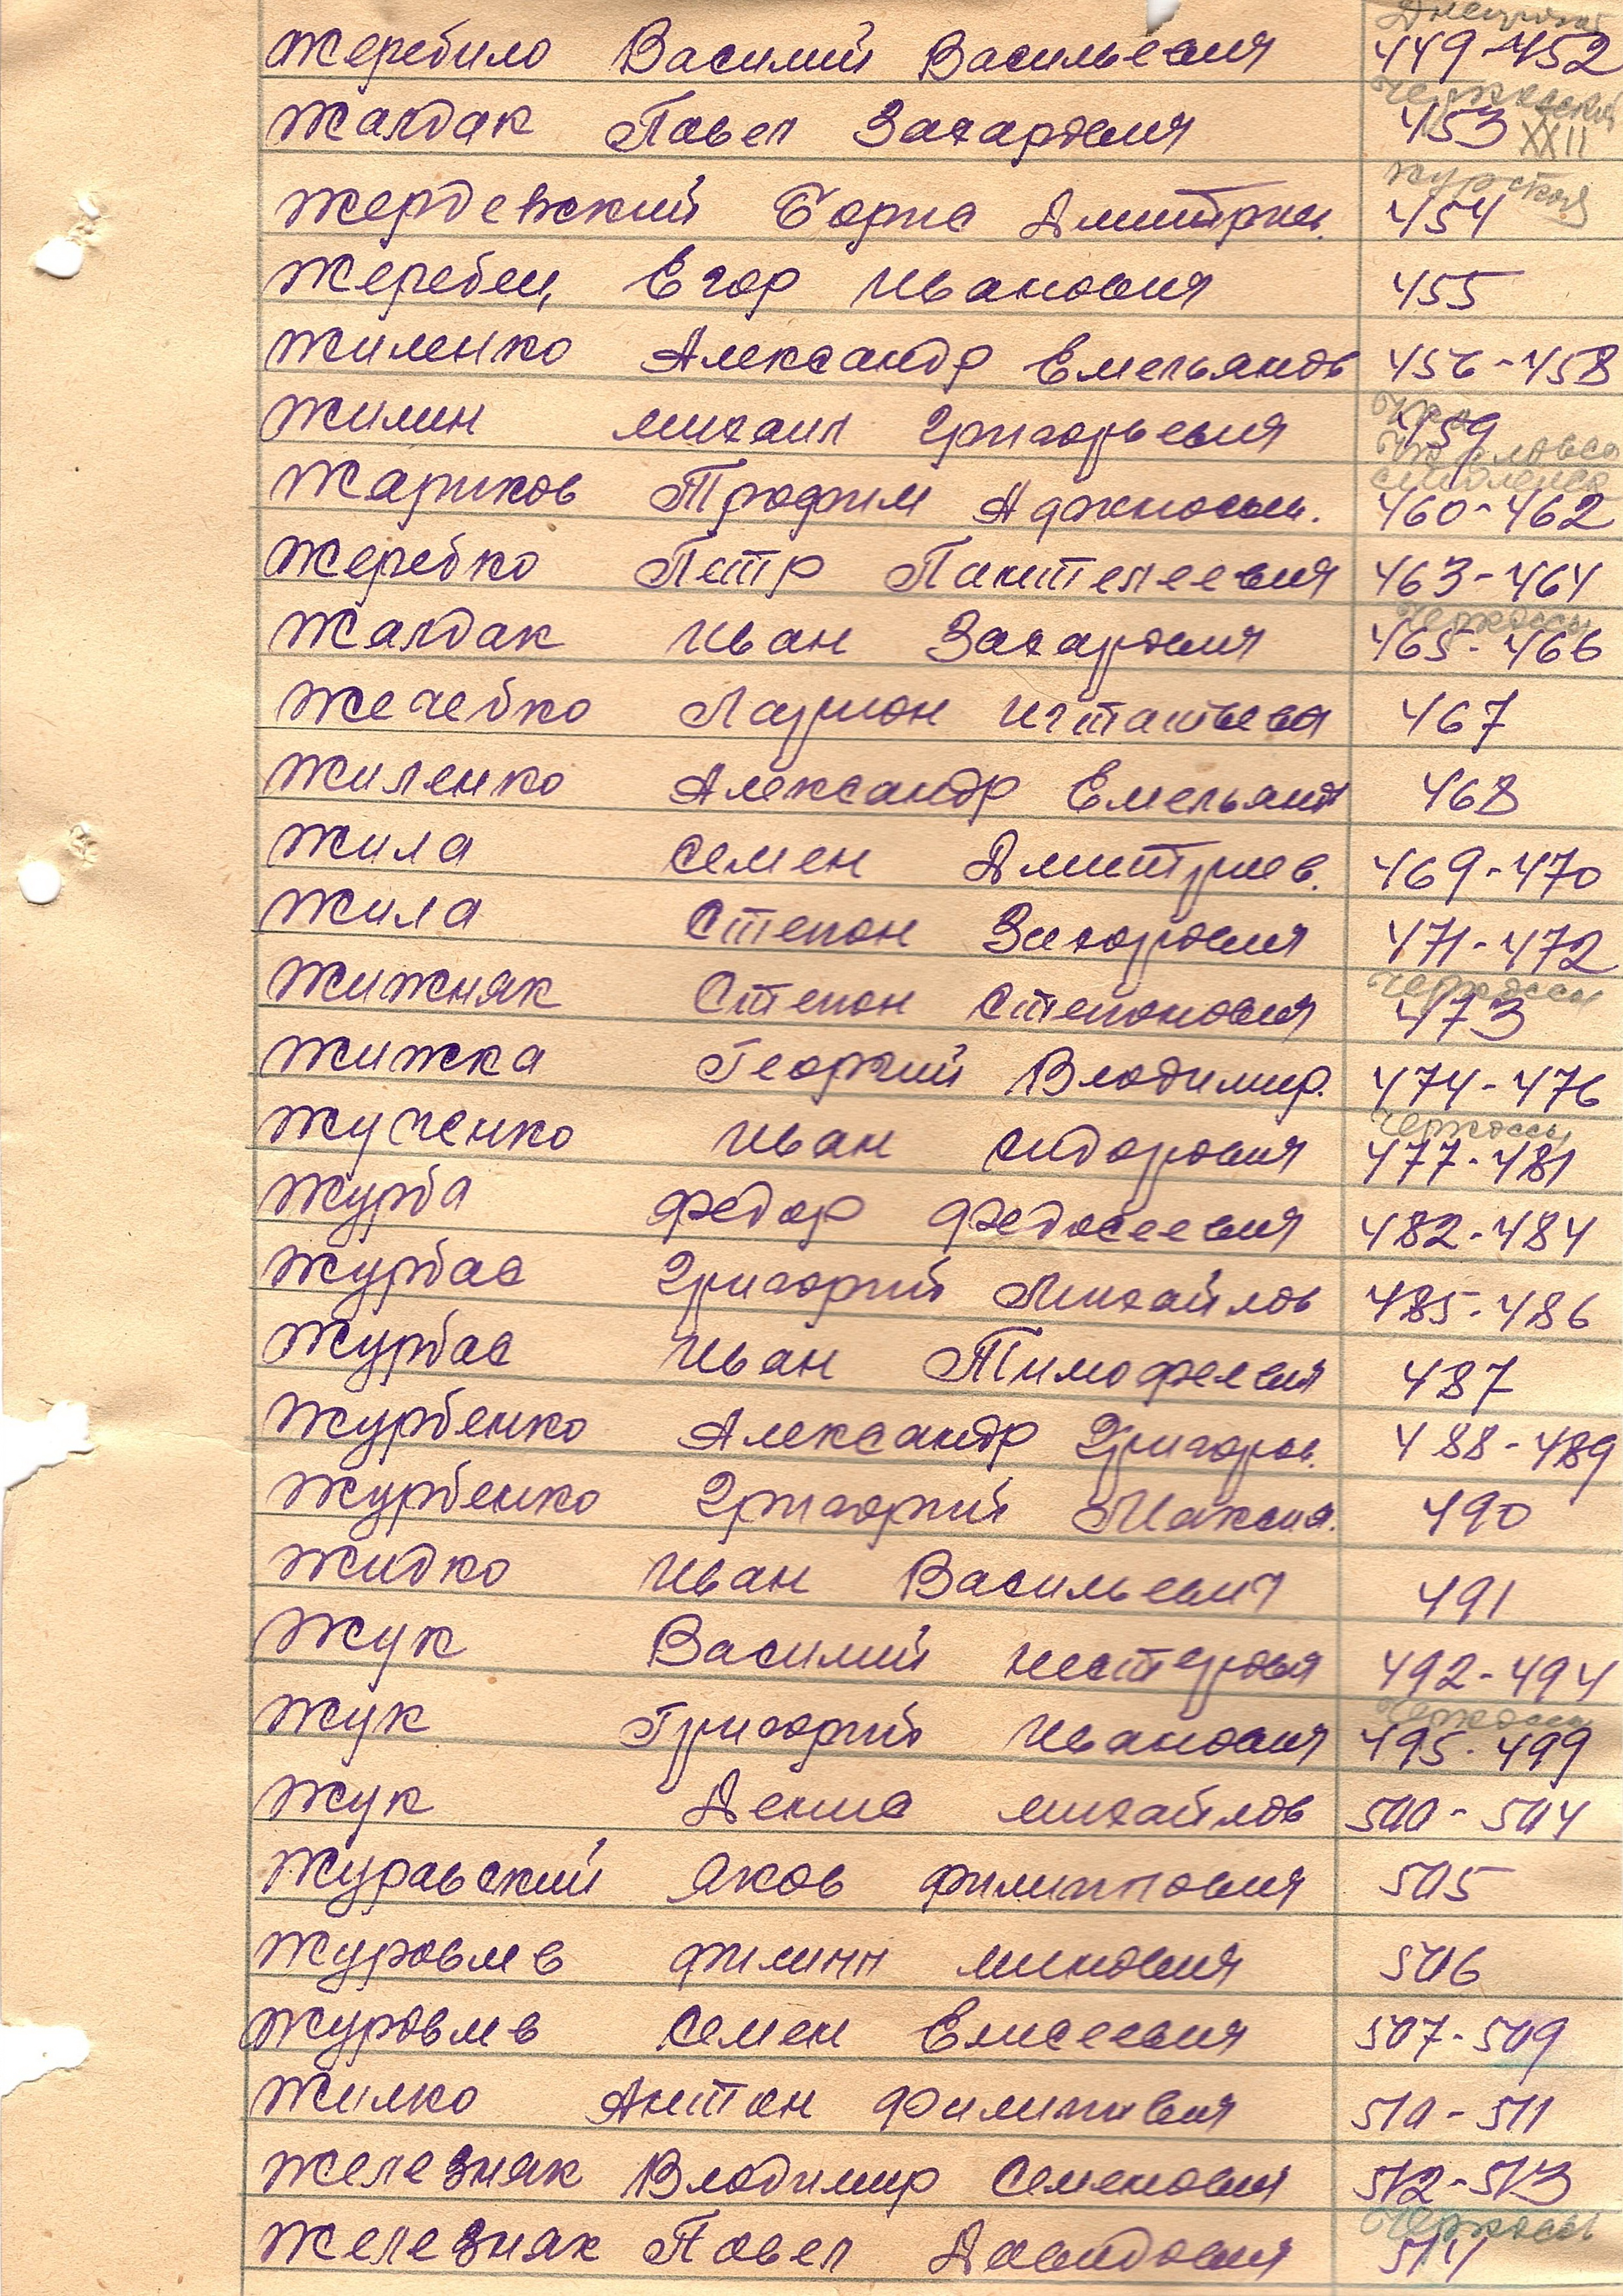 Днепропет
Жеребило Василий Васильевич 449-452
Черкасский
Жалдак Павел Захарович 453 XXII
Курской
Жердевский Борис Дмитриев. 454
Жеребец Егор Иванович 455
Жиленко Александр Емельянов 456-458
Жилин Михаил Григорьевич 459
Жариков Трофим 460-462
Жеребко Петр Пантелеевич 463-464
Черкассы
Жалдак Иван Захарович 465-466
Жечебко Ларион Игнатьевич 467
Жиленко Александр Емельянов 468
Жила Семен Дмитриев. 469-470
Жила Степан Захарович 471-472
Черкассы
Жижняк Степан Степанович 473
Жижка Георгий Владимир. 474-476
Черкассы
Жученко Иван Сидорович 477-481
Журба Федор Федосеевич 482-484
Журбас Григорий Михайлов 485-486
Журбас Иван Тимофеевич 487
Журбенко Александр Григоров. 488-489
Журбенко Григорий Максим. 490
Жидко Иван Васильевич 491
Жук Василий Нестерович 492-494
Черкассы
Жук Григорий Иванович 495-499
Жук Денис Михайлов 500-504
Журавский Яков Филиппович 505
Журовлев Филипп Минович 506
Журовлев Семен Елисеевич 507-509
Жилко Антон Филиппович 510-511
Железняк Владимир Семенович 512-513
Черкассы
Железняк Павел Давидович 514